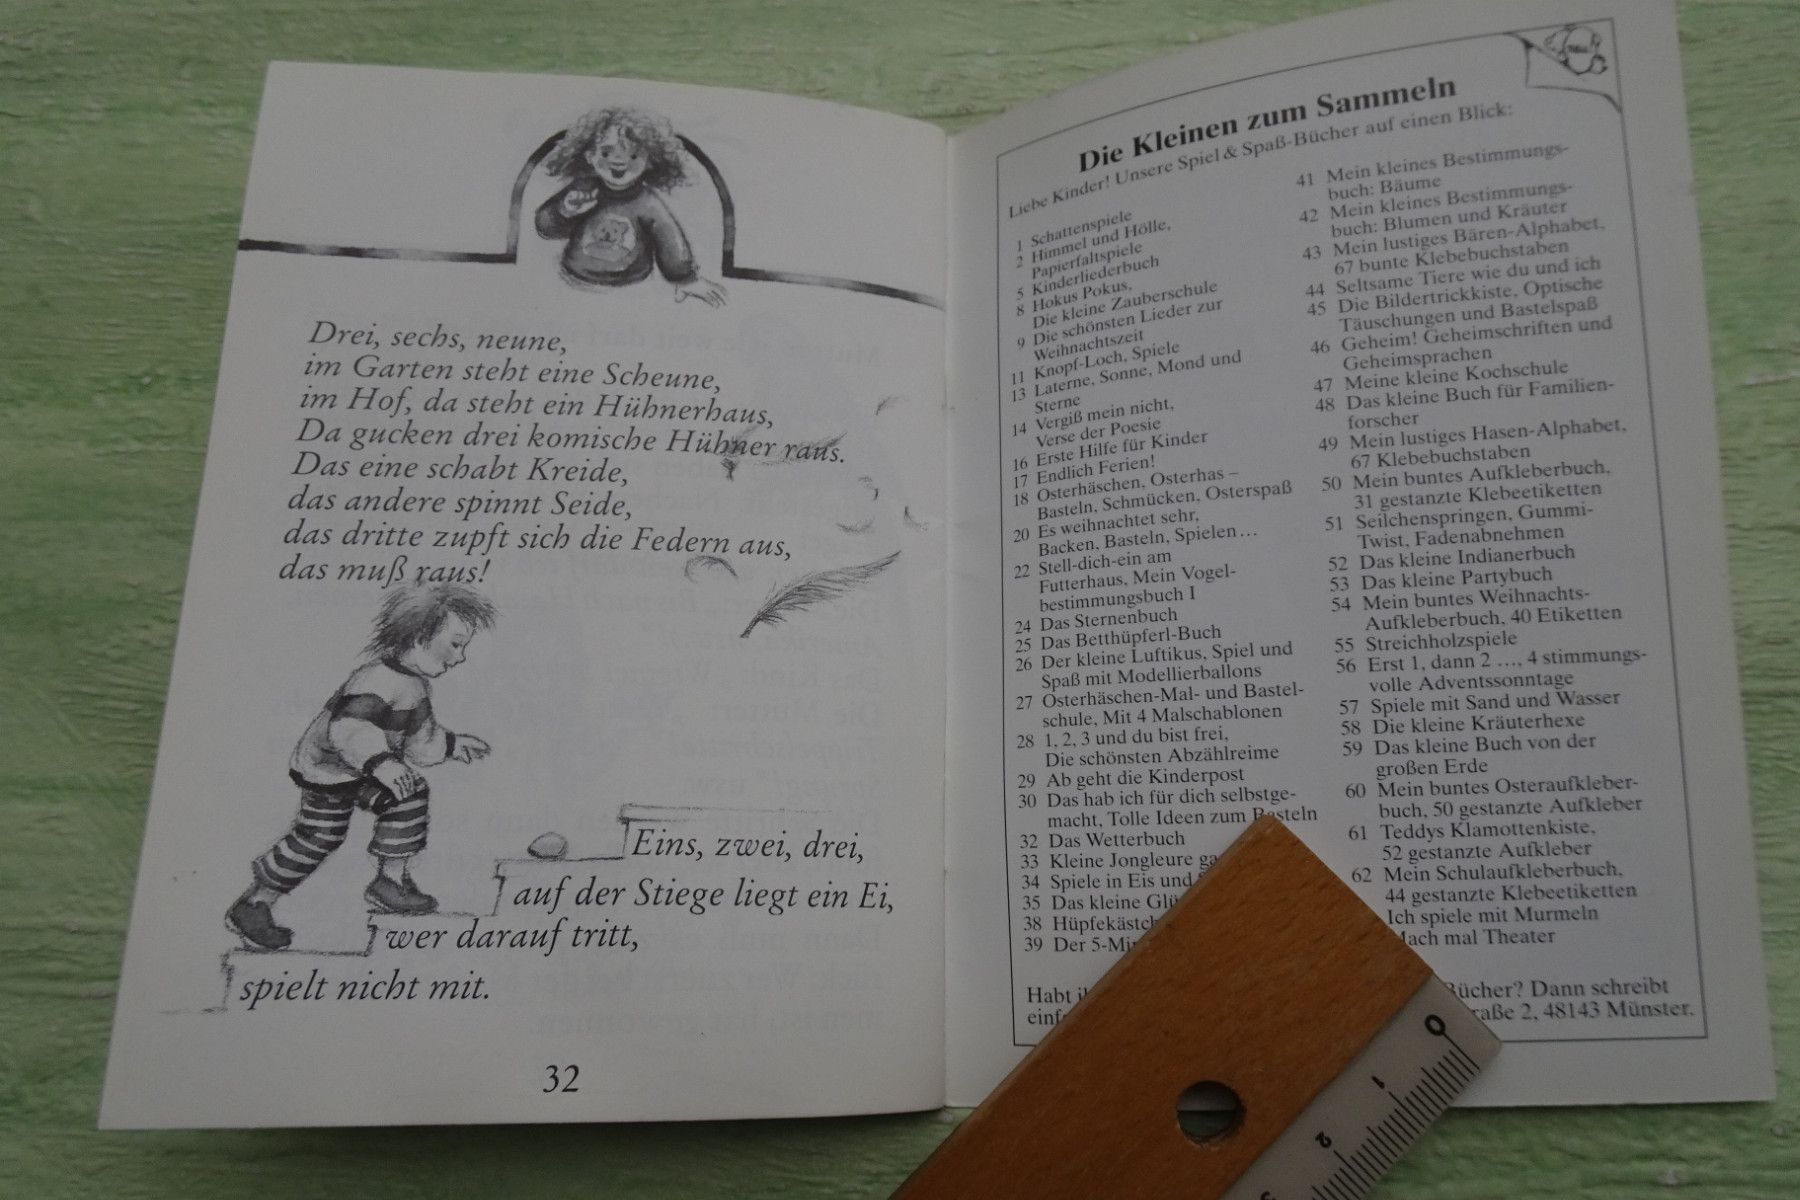 Drei, sechs, neune,
im Garten steht eine Scheune,
im Hof, da steht ein Hühnerhaus,
Da gucken drei komische Hühner raus.
Das eine schabt Kreide,
das andere spinnt Seide,
das dritte zupft sich die Federn aus,
das muß raus!
Eins, zwei, drei,
auf der Stiege liegt ein Ei,
wer darauf tritt,
spielt nicht mit.
32
Die Kleinen zum Sammeln
Liebe Kinder! Unsere Spiel & Spaß-Bücher auf einen Blick:
1 Schattenspiele
2 Himmel und Hölle,
Papierfaltspiele
5 Kinderliederbuch
8 Hokus Pokus,
Die kleine Zauberschule
9 Die schönsten Lieder zur
Weihnachtszeit
11 Knopf-Loch, Spiele
13 Laterne, Sonne, Mond und
Sterne
14 Vergiß mein nicht,
Verse der Poesie
16 Erste Hilfe für Kinder
17 Endlich Ferien!
18 Osterhäschen, Osterhas –
Basteln, Schmücken, Osterspaß
20 Es weihnachtet sehr,
Backen, Basteln, Spielen…
22 Stell-dich-ein am
Futterhaus, Mein Vogel-
bestimmungsbuch I
24 Das Sternenbuch
25 Das Betthüpferl-Buch
26 Der kleine Luftikus, Spiel und
Spaß mit Modellierballons
27 Osterhäschen-Mal- und Bastel-
schule, Mit 4 Malschablonen
28 1, 2, 3 und du bist frei,
Die schönsten Abzählreime
29 Ab geht die Kinderpost
30 Das hab ich für dich selbstge-
macht, Tolle Ideen zum Basteln
32 Das Wetterbuch
33 Kleine Jongleure
34 Spiele in Eis und
35 Das kleine
38
39 Der
41 Mein kleines Bestimmungs-
buch: Bäume
42 Mein kleines Bestimmungs-
buch: Blumen und Kräuter
43 Mein lustiges Bären-Alphabet,
67 bunte Klebebuchstaben
44 Seltsame Tiere wie du und ich
45 Die Bildertrickkiste, Optische
Täuschungen und Bastelspaß
46 Geheim! Geheimschriften und
Geheimsprachen
47 Meine kleine Kochschule
48 Das kleine Buch für Familien-
forscher
49 Mein lustiges Hasen-Alphabet,
67 Klebebuchstaben
50 Mein buntes Aufkleberbuch,
31 gestanzte Klebeetiketten
51 Seilchenspringen, Gummi-
Twist, Fadenabnehmen
52 Das kleine Indianerbuch
53 Das kleine Partybuch
54 Mein buntes Weihnachts-
Aufkleberbuch, 40 Etiketten
55 Streichholzspiele
56 Erst 1, dann 2 …, 4 stimmungs-
volle Adventssonntage
57 Spiele mit Sand und Wasser
58 Die kleine Kräuterhexe
59 Das kleine Buch von der
großen Erde
60 Mein buntes Osteraufkleber-
buch, 50 gestanzte Aufkleber
61 Teddys Klamottenkiste,
52 gestanzte Aufkleber
62 Mein Schulaufkleberbuch,
44 gestanzte Klebeetiketten
Ich spiele mit Murmeln
Mach mal Theater
Habt
Bücher? Dann schreibt
2, 48143 Münster.
0
1
2